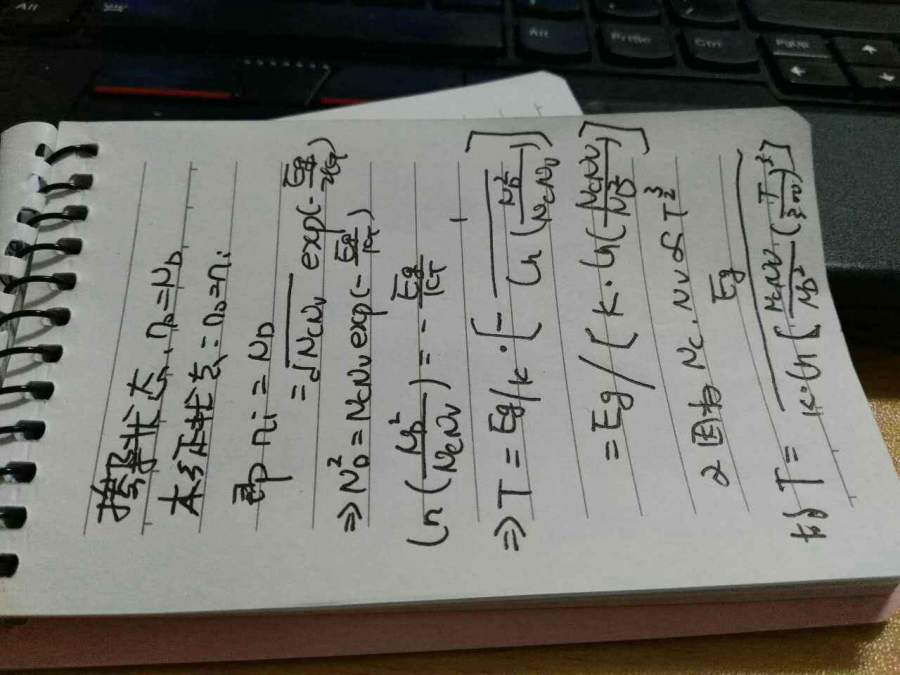 掺杂状态, n₀=N_D
本征状态: n₀=nᵢ
即 nᵢ = N_D
= √(NcNv) exp(-Eg/2kT)
⇒ N_D² = NcNv exp(-Eg/kT)
ln(N_D²/NcNv) = -Eg/kT
⇒ T = Eg/k·[-1/ln(N_D²/NcNv)]
= Eg/[k·ln(NcNv/N_D²)]
又因为 Nc, Nv ∝ T^(3/2)
故 T = Eg/k·ln[NcNv/N_D² (T/300)³]
Alt
PrtSc
Ctrl
PgUp